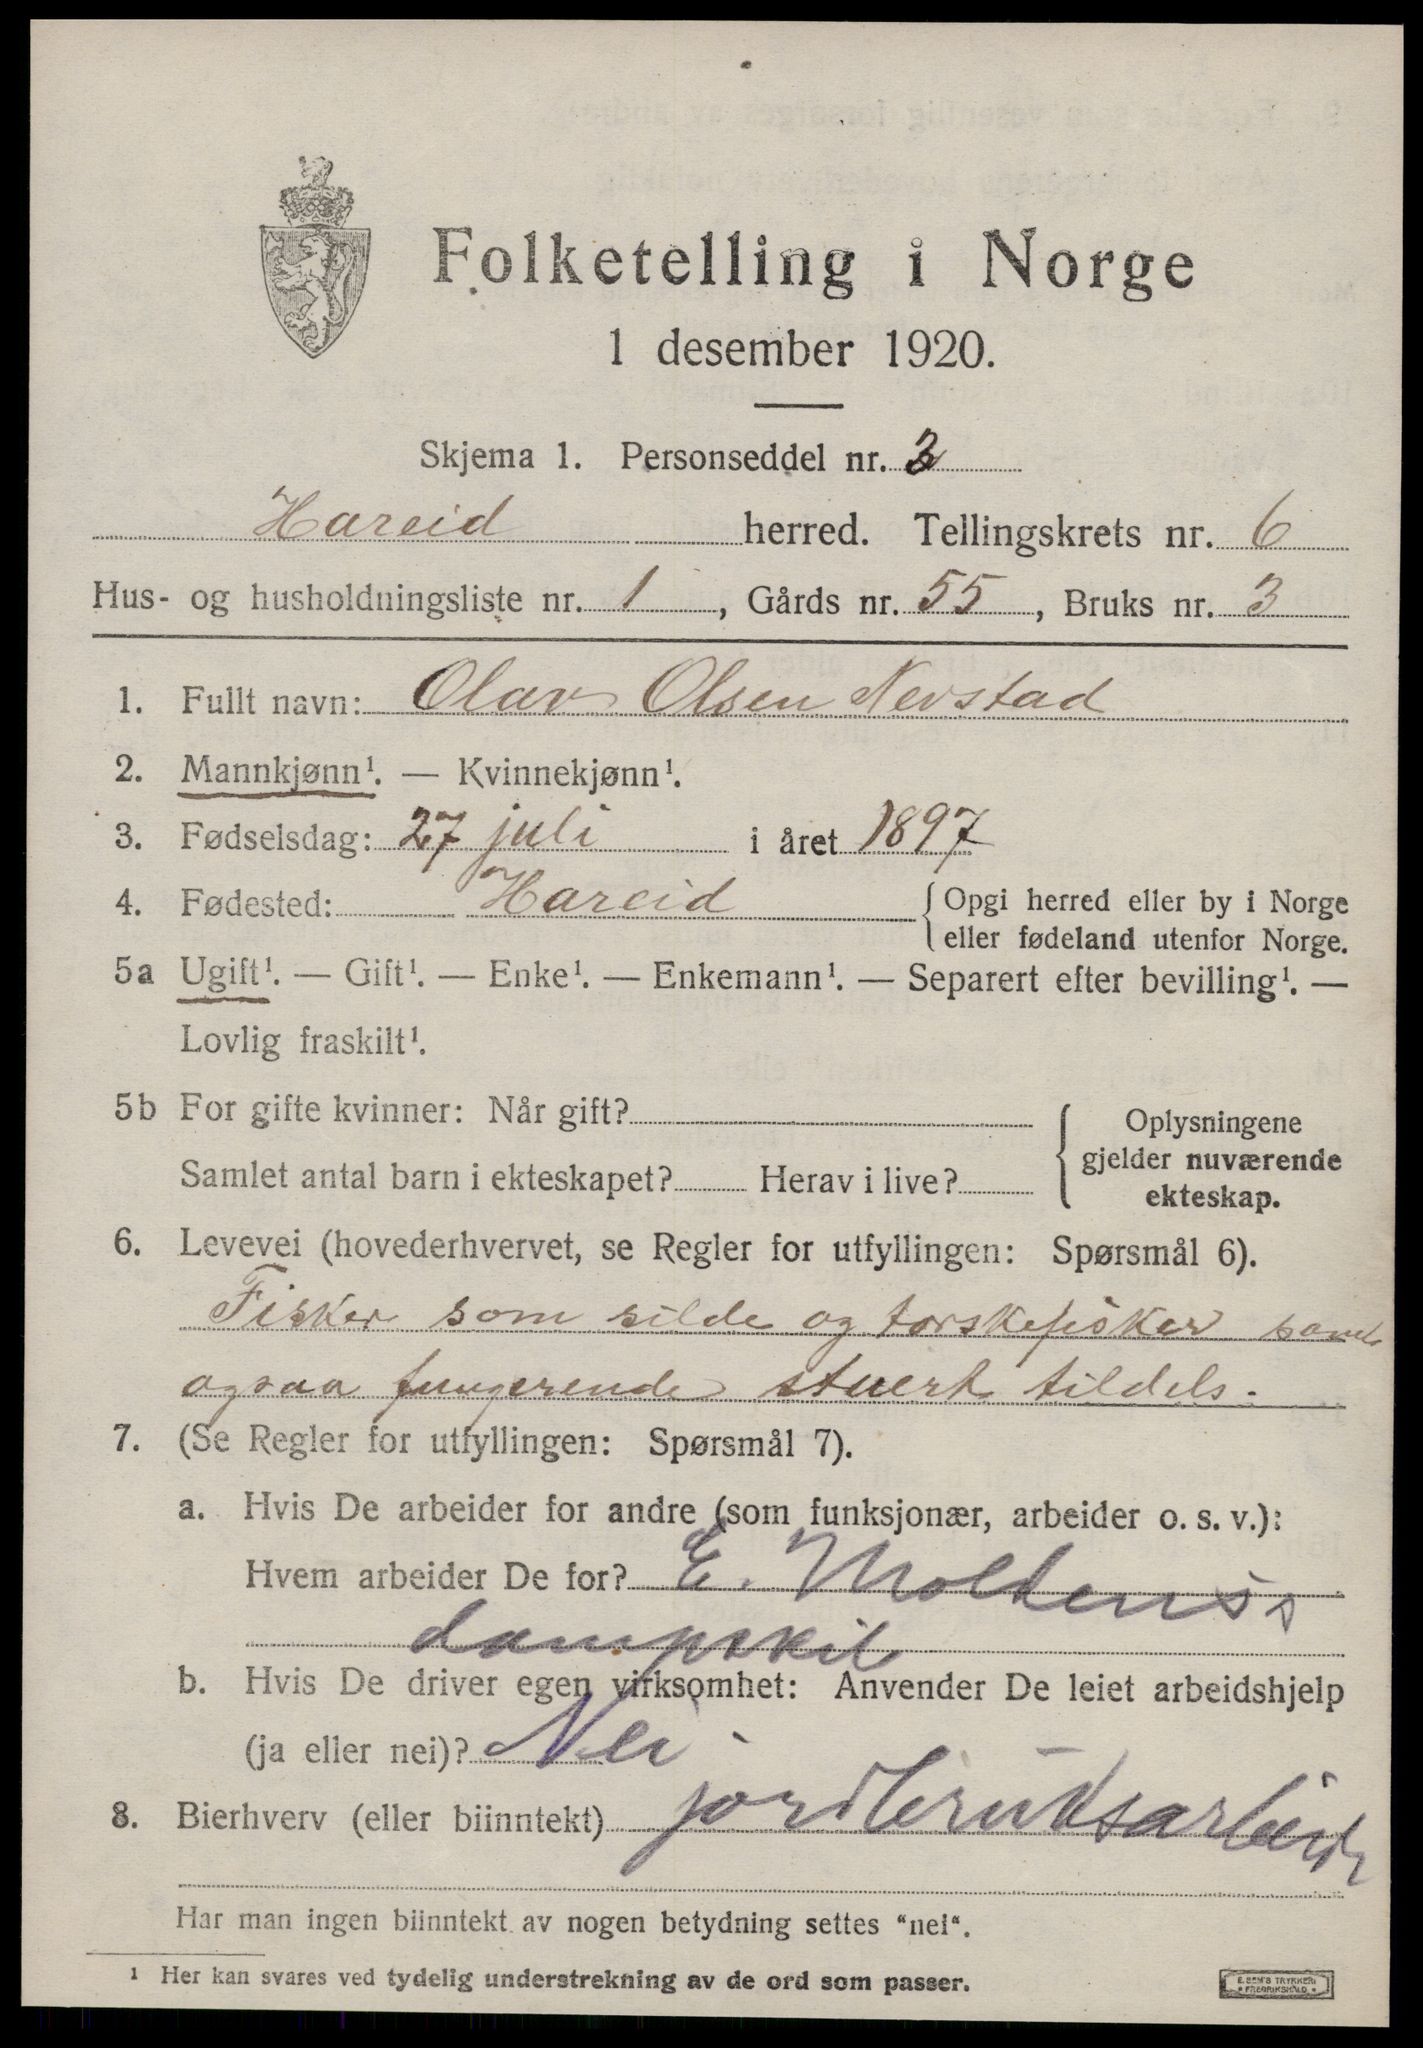 Folketelling i Norge
1 desember 1920.
Skjema 1. Personseddel nr.
Hareid herred. Tellingskrets nr. 6
Hus- og husholdningsliste nr. 1, Gårds nr. 55, Bruks nr. 3
1. Fullt navn: Olav Olsen Nevstad
2. Mannkjønn¹. — Kvinnekjønn¹.
3. Fødselsdag: 27 juli i året 1897
4. Fødested: Hareid { Opgi herred eller by i Norge
eller fødeland utenfor Norge.
5a Ugift¹. — Gift¹. — Enke¹. — Enkemann¹. — Separert efter bevilling¹. —
Lovlig fraskilt¹.
5b For gifte kvinner: Når gift? { Oplysningene
gjelder nuværende
ekteskap.
Samlet antal barn i ekteskapet? Herav i live?
6. Levevei (hovederhvervet, se Regler for utfyllingen: Spørsmål 6).
Fisker som silde og torskefisker samt
ogsaa fungerende stuert tildels.
7. (Se Regler for utfyllingen: Spørsmål 7).
a. Hvis De arbeider for andre (som funksjonær, arbeider o. s. v.):
Hvem arbeider De for? E.
b. Hvis De driver egen virksomhet: Anvender De leiet arbeidshjelp
(ja eller nei)? Nei
8. Bierhverv (eller biinntekt) jordbruksarbeide
Har man ingen biinntekt av nogen betydning settes "nei".
¹ Her kan svares ved tydelig understrekning av de ord som passer.
E. SEM'S TRYKKERI
* FREDRIKSHALD. *